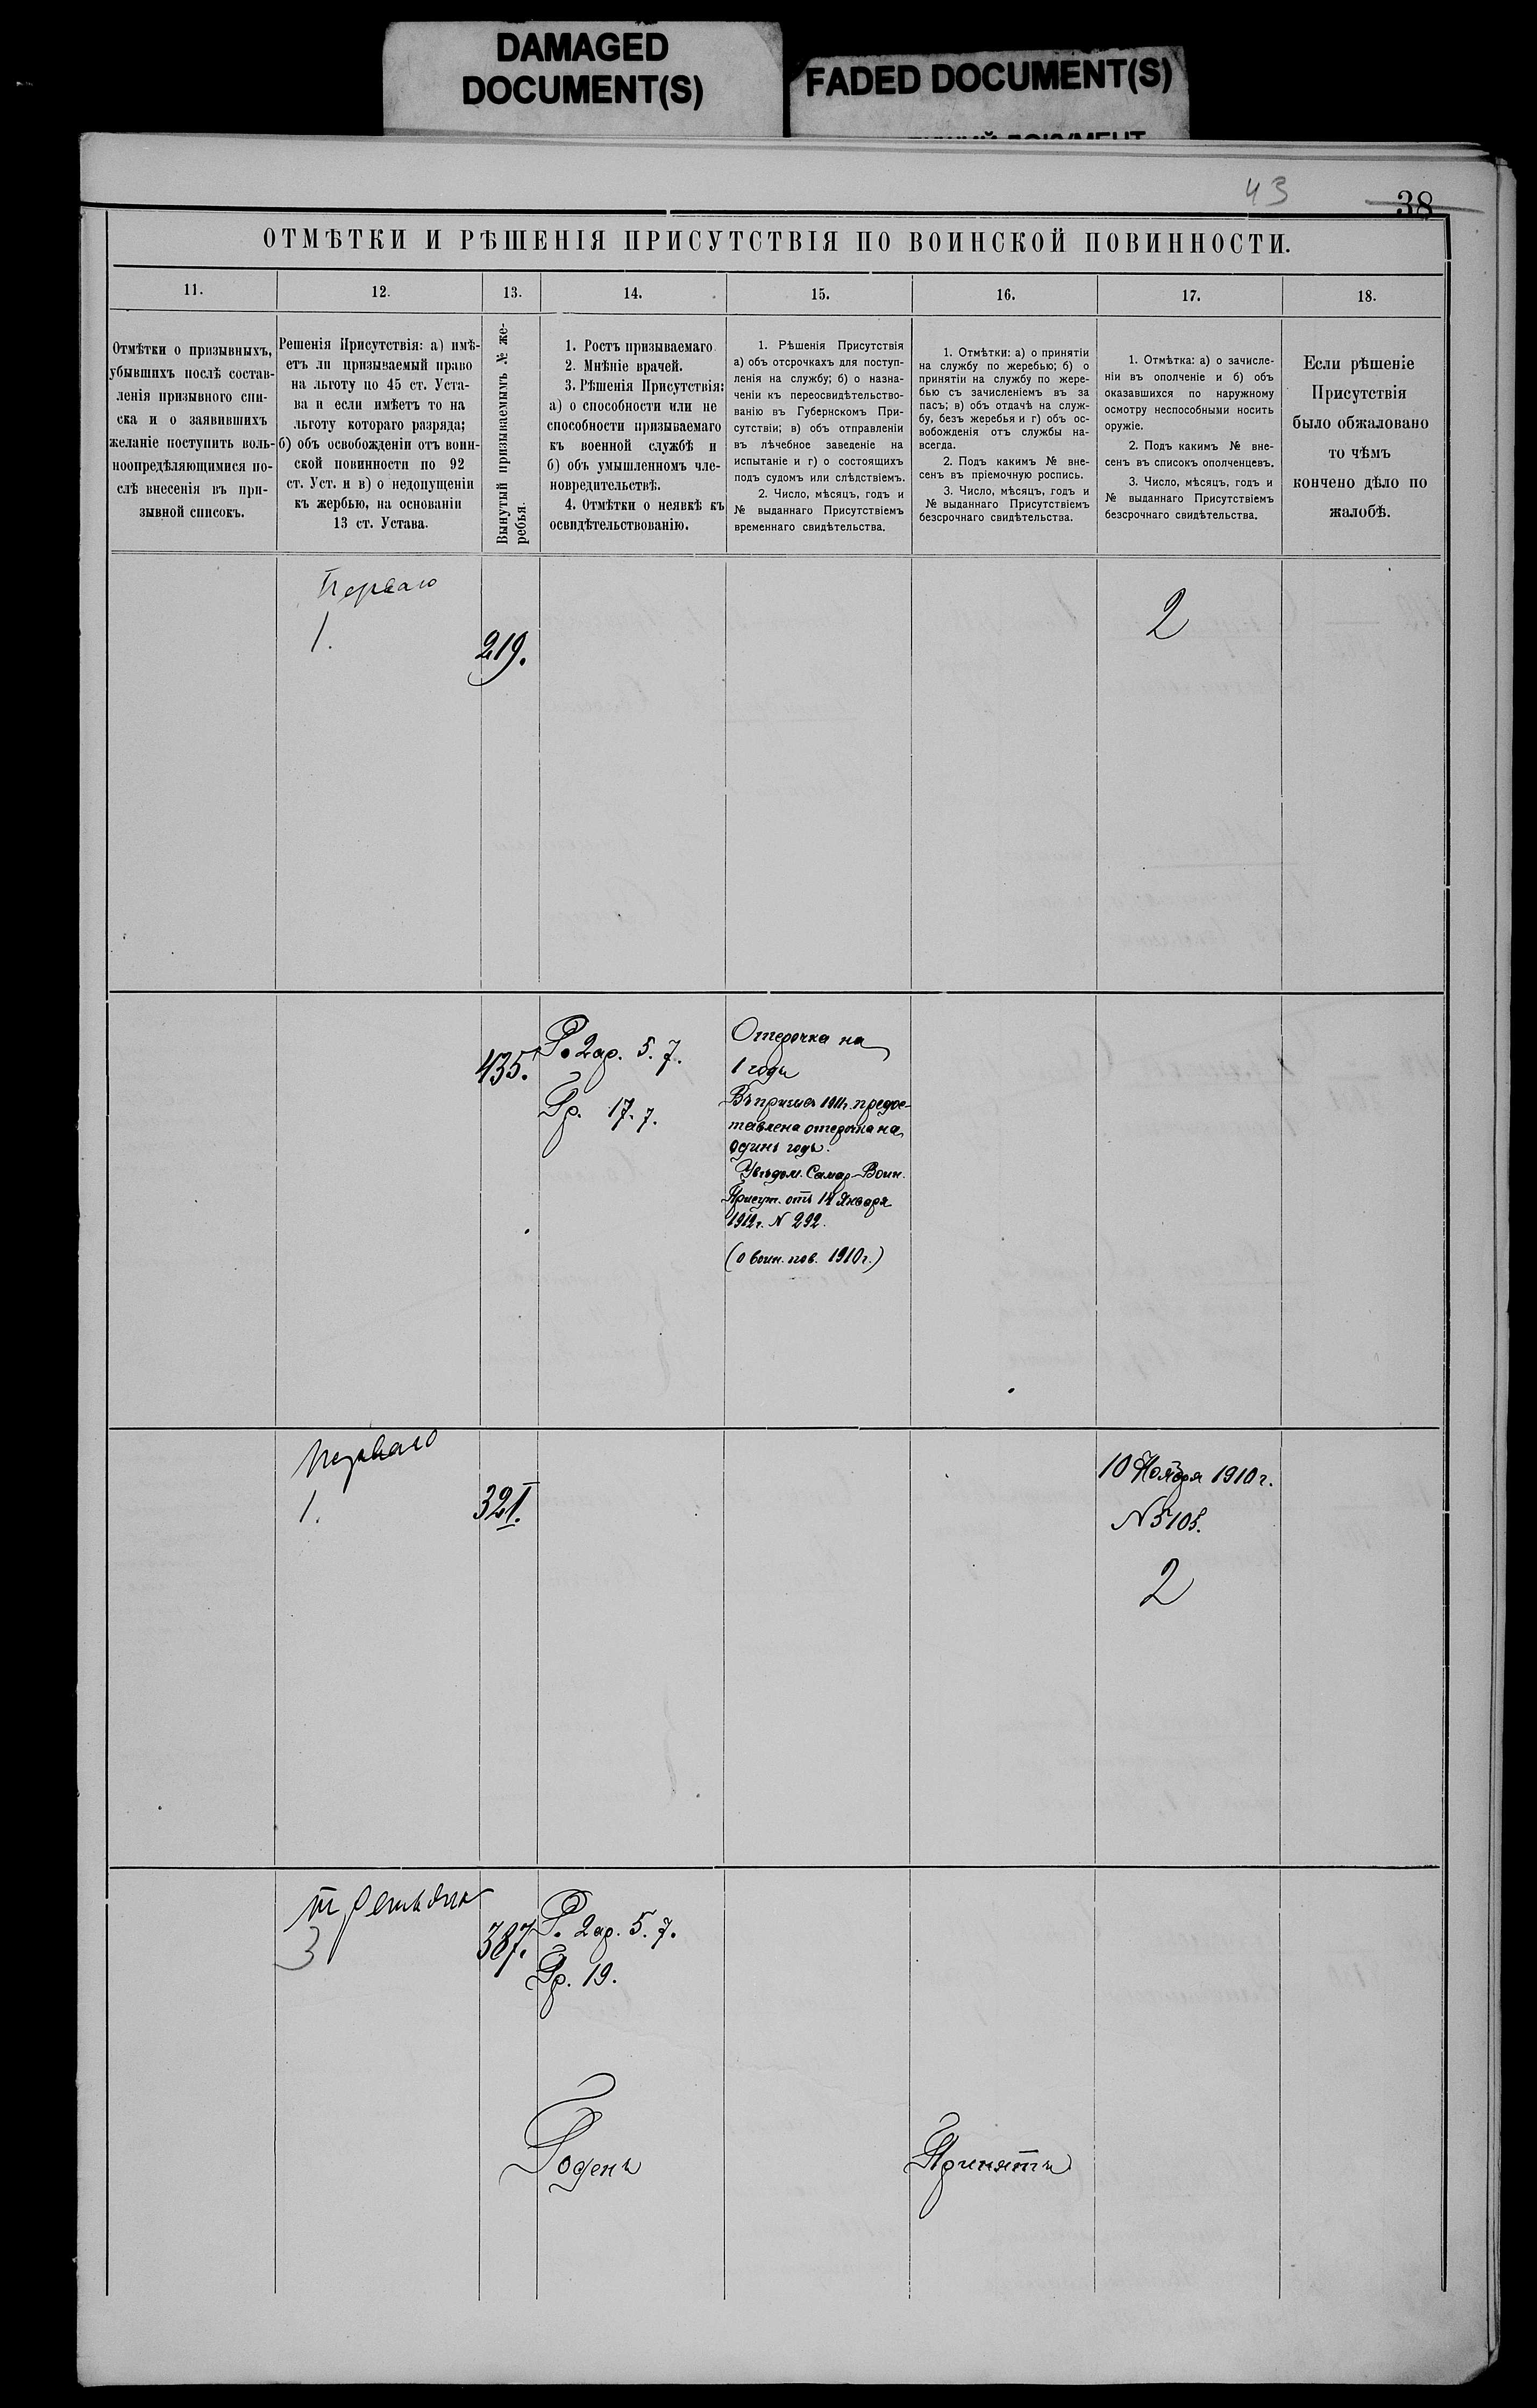 DAMAGED
DOCUMENT(S)
FADED DOCUMENT(S)
43
38
ОТМѢТКИ И РѢШЕНІЯ ПРИСУТСТВІЯ ПО ВОИНСКОЙ ПОВИННОСТИ.
11.
12.
13.
14.
15.
16.
17.
18.
Отмѣтки о призывныхъ,
убывшихъ послѣ состав-
ленія призывного спи-
ска и о заявившихъ
желаніе поступить воль-
ноопредѣляющимися по-
слѣ внесенія въ при-
зывной списокъ.
Решенія Присутствія: а) имѣ-
етъ ли призываемый право
на льготу по 45 ст. Уста-
ва и если имѣетъ то на
льготу котораго разряда;
б) объ освобожденіи отъ воин-
ской повинности по 92
ст. Уст. и в) о недопущеніи
къ жербью, на основаніи
13 ст. Устава.
Вынутый призываемымъ № же-
ребья.
1. Ростъ призываемаго
2. Мнѣніе врачей.
3. Рѣшенія Присутствія:
а) о способности или не
способности призываемаго
къ военной службѣ и
б) объ умышленномъ чле-
новредительствѣ.
4. Отмѣтки о неявкѣ къ
освидѣтельствованію.
1. Рѣшенія Присутствія
а) объ отсрочкахъ для поступ-
ленія на службу; б) о назна-
ченіи къ переосвидѣтельство-
ванію въ Губернскомъ При-
сутствіи; в) объ отправленіи
въ лѣчебное заведеніе на
испытаніе и г) о состоящихъ
подъ судомъ или слѣдствіемъ.
2. Число, мѣсяцъ, годъ и
№ выданнаго Присутствіемъ
временнаго свидѣтельства.
1. Отмѣтки: а) о принятіи
на службу по жеребью; б) о
принятіи на службу по жере-
бью съ зачисленіемъ въ за
пасъ; в) объ отдачѣ на служ-
бу, безъ жеребья и г) объ ос-
вобожденія отъ службы на-
всегда.
2. Подъ какимъ № вне-
сенъ въ пріемочную роспись.
3. Число, мѣсяцъ, годъ и
№ выданнаго Присутствіемъ
безсрочнаго свидѣтельства.
1. Отмѣтка: а) о зачисле-
ніи въ ополченіе и б) объ
оказавшихся по наружному
осмотру неспособными носить
оружіе.
2. Подъ какимъ № вне-
сенъ въ списокъ ополченцевъ.
3. Число, мѣсяцъ, годъ и
№ выданнаго Присутствіемъ
безсрочнаго свидѣтельства.
Если рѣшеніе
Присутствія
было обжаловано
то чѣмъ
кончено дѣло по
жалобѣ.
Перваго
1.
219.
2
435.
Р. 2ар. 5. 7.
Гр. 17. 7.
Отсрочка на
1 годъ
Въ призывъ 1911г. предос-
тавлена отсрочка на
одинъ годъ.
Увѣдом. Самар. Воин.
Присут. отъ 14 Января
1912г. N 292.
(о воин. пов. 1910г.)
Перваго
1.
321.
10 Ноября 1910г.
N 5105.
2
третьяго
3
387.
Р. 2ар. 5. 7.
Гр. 19.
Годенъ
Принятъ